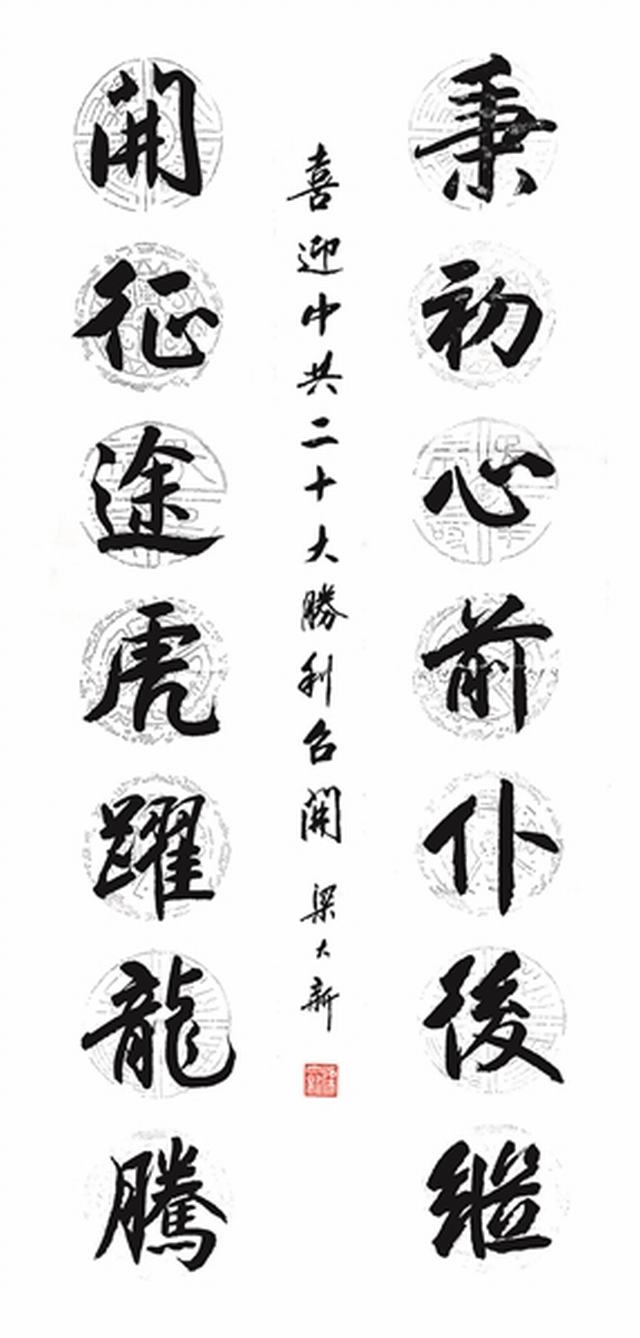 秉初心前仆後繼
喜迎中共二十大勝利召開 梁大新
開征途虎躍龍騰